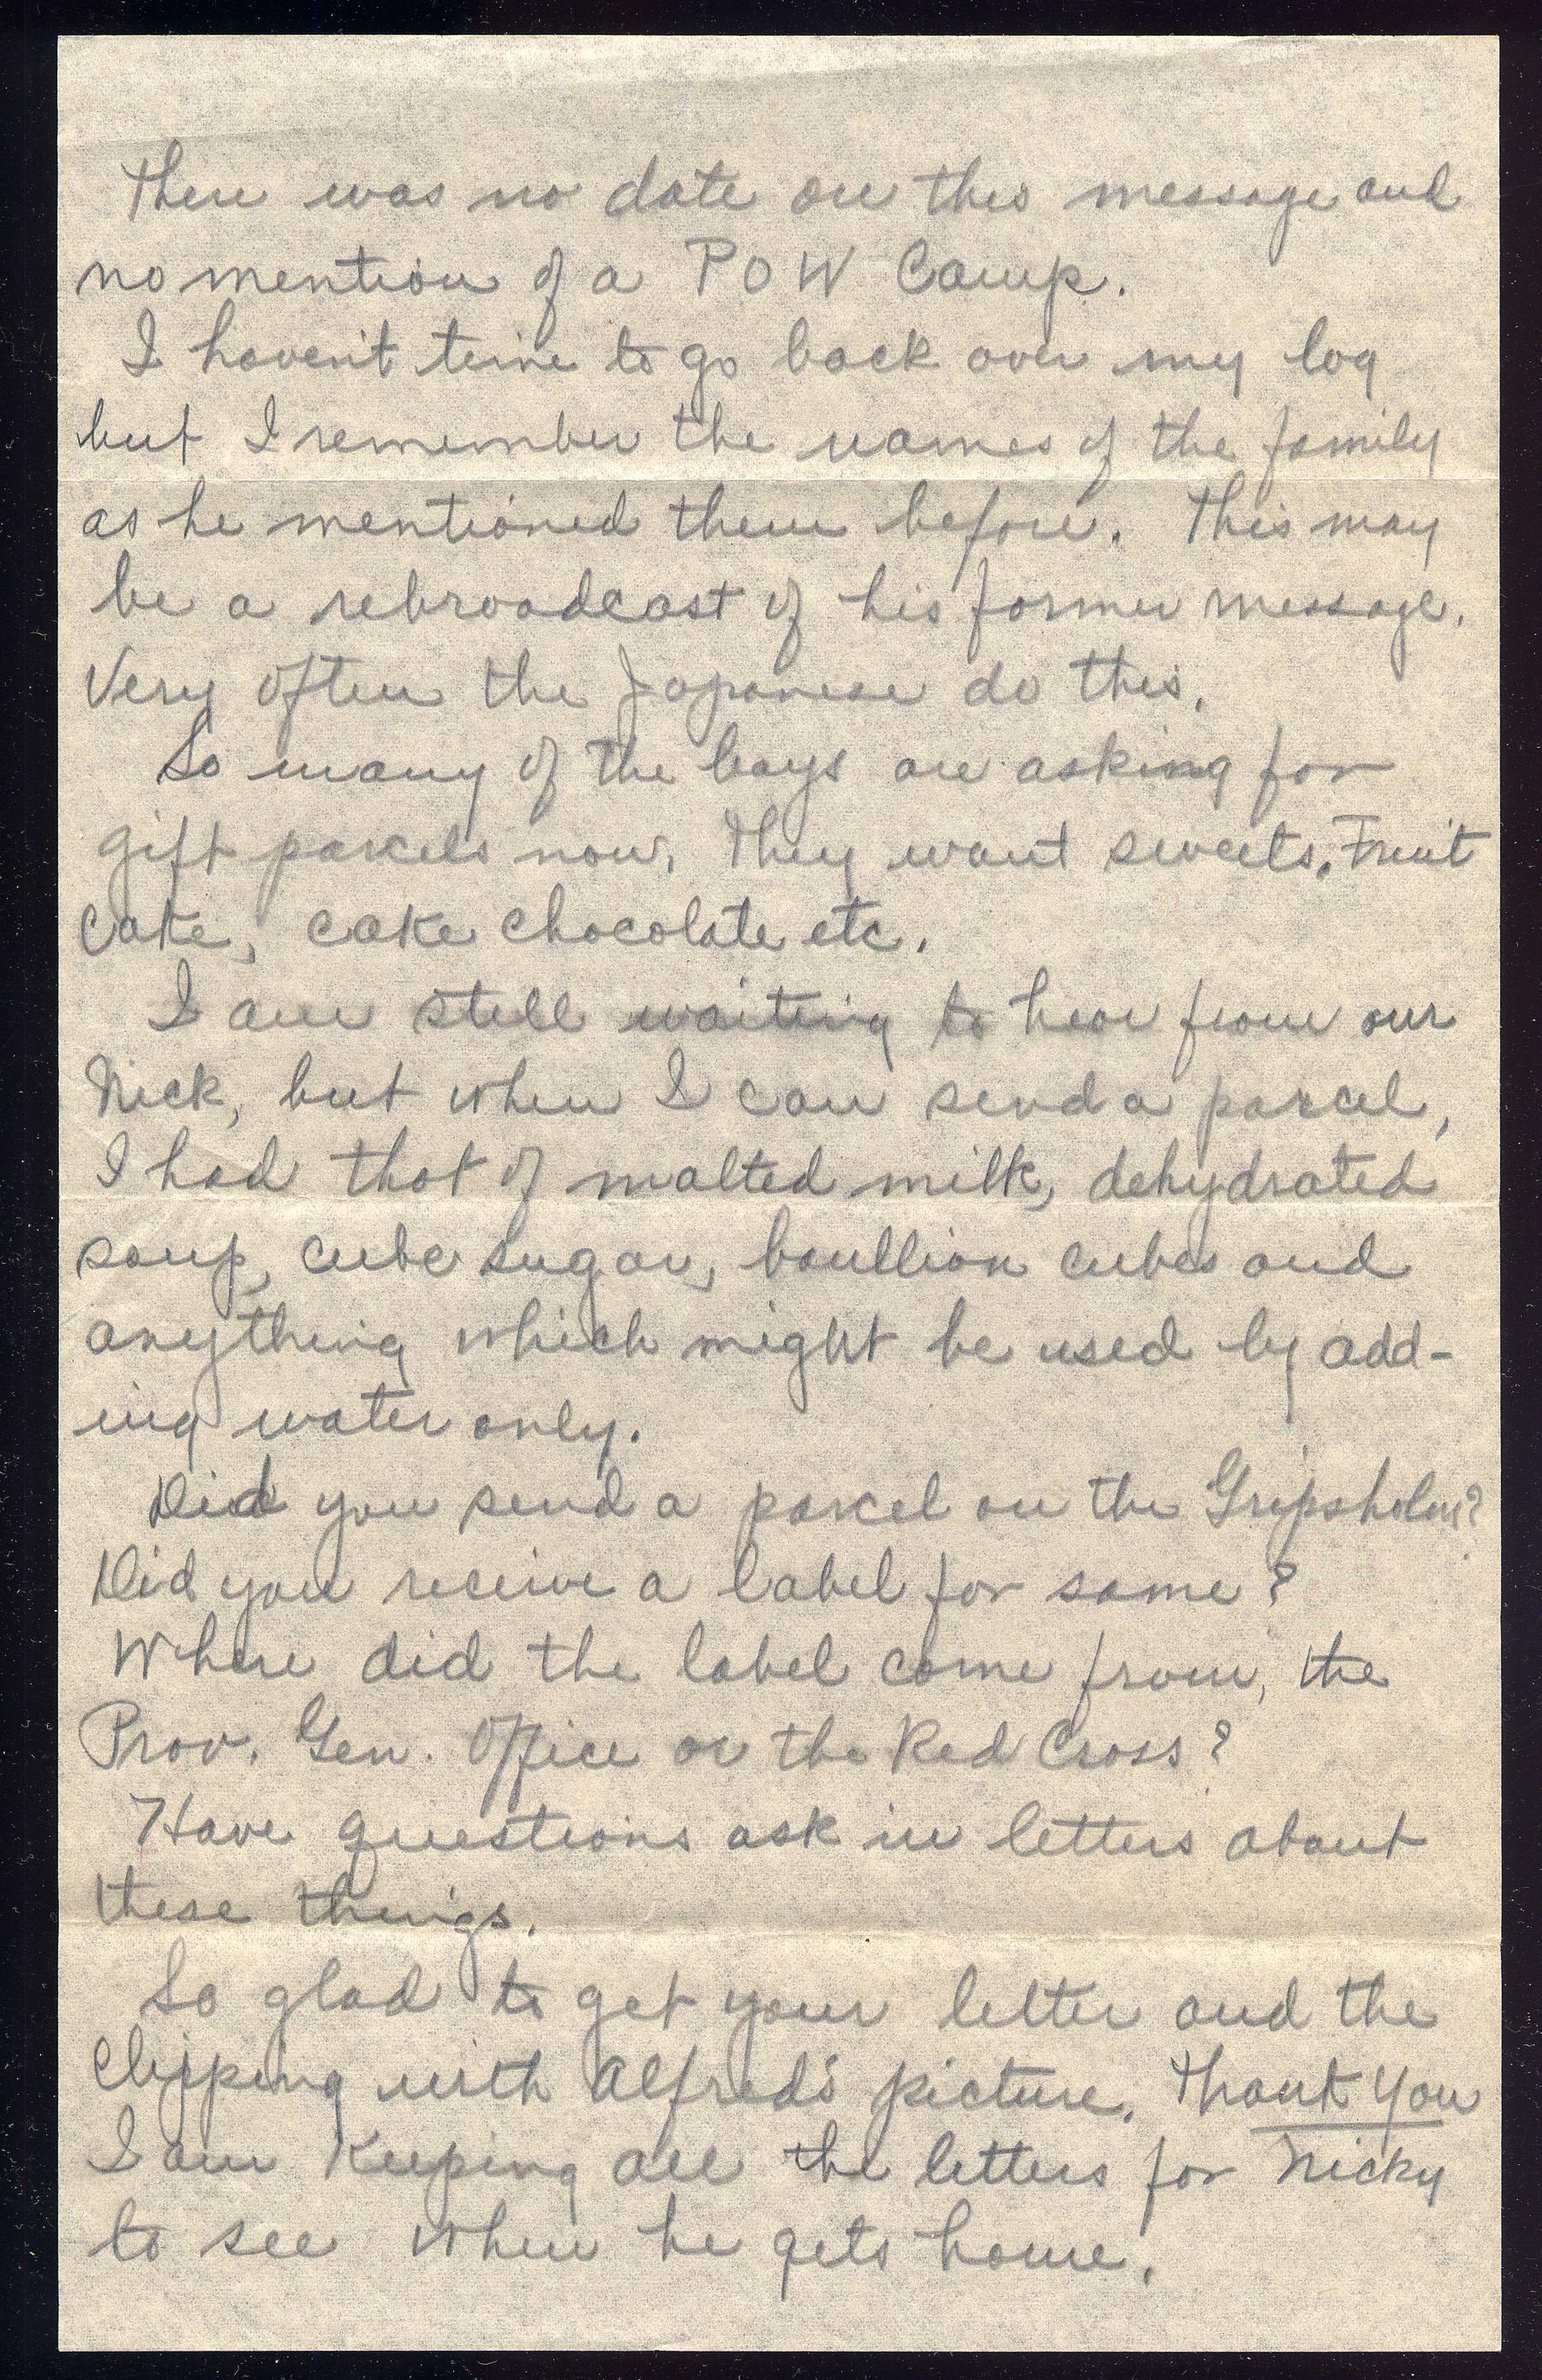 There was no date on this message and
no mention of a POW Camp.
I haven't time to go back over my log
but I remember the names of the family
as he mentioned them before. This may
be a rebroadcast of his former message.
Very often the Japanese do this.
So many of the boys are asking for
gift parcels now, They want sweets. Fruit
Cake, cake chocolate etc.
I am still waiting to hear from our
Nick, but when I can send a parcel,
I had thot of malted milk, dehydrated
soup, cube sugar, boullion cubes and
anything which might be used by add-
ing water only.
Did you send a parcel on the Gripsholm?
Did you receive a label for same?
Where did the label come from, the
Prov. Gen. Office or the Red Cross?
Have questions ask in letters about
these things.
So glad to get your letter and the
Clipping with Alfred's picture. Thank You
I am Keeping all the letters for Nicky
to see when he gets home.